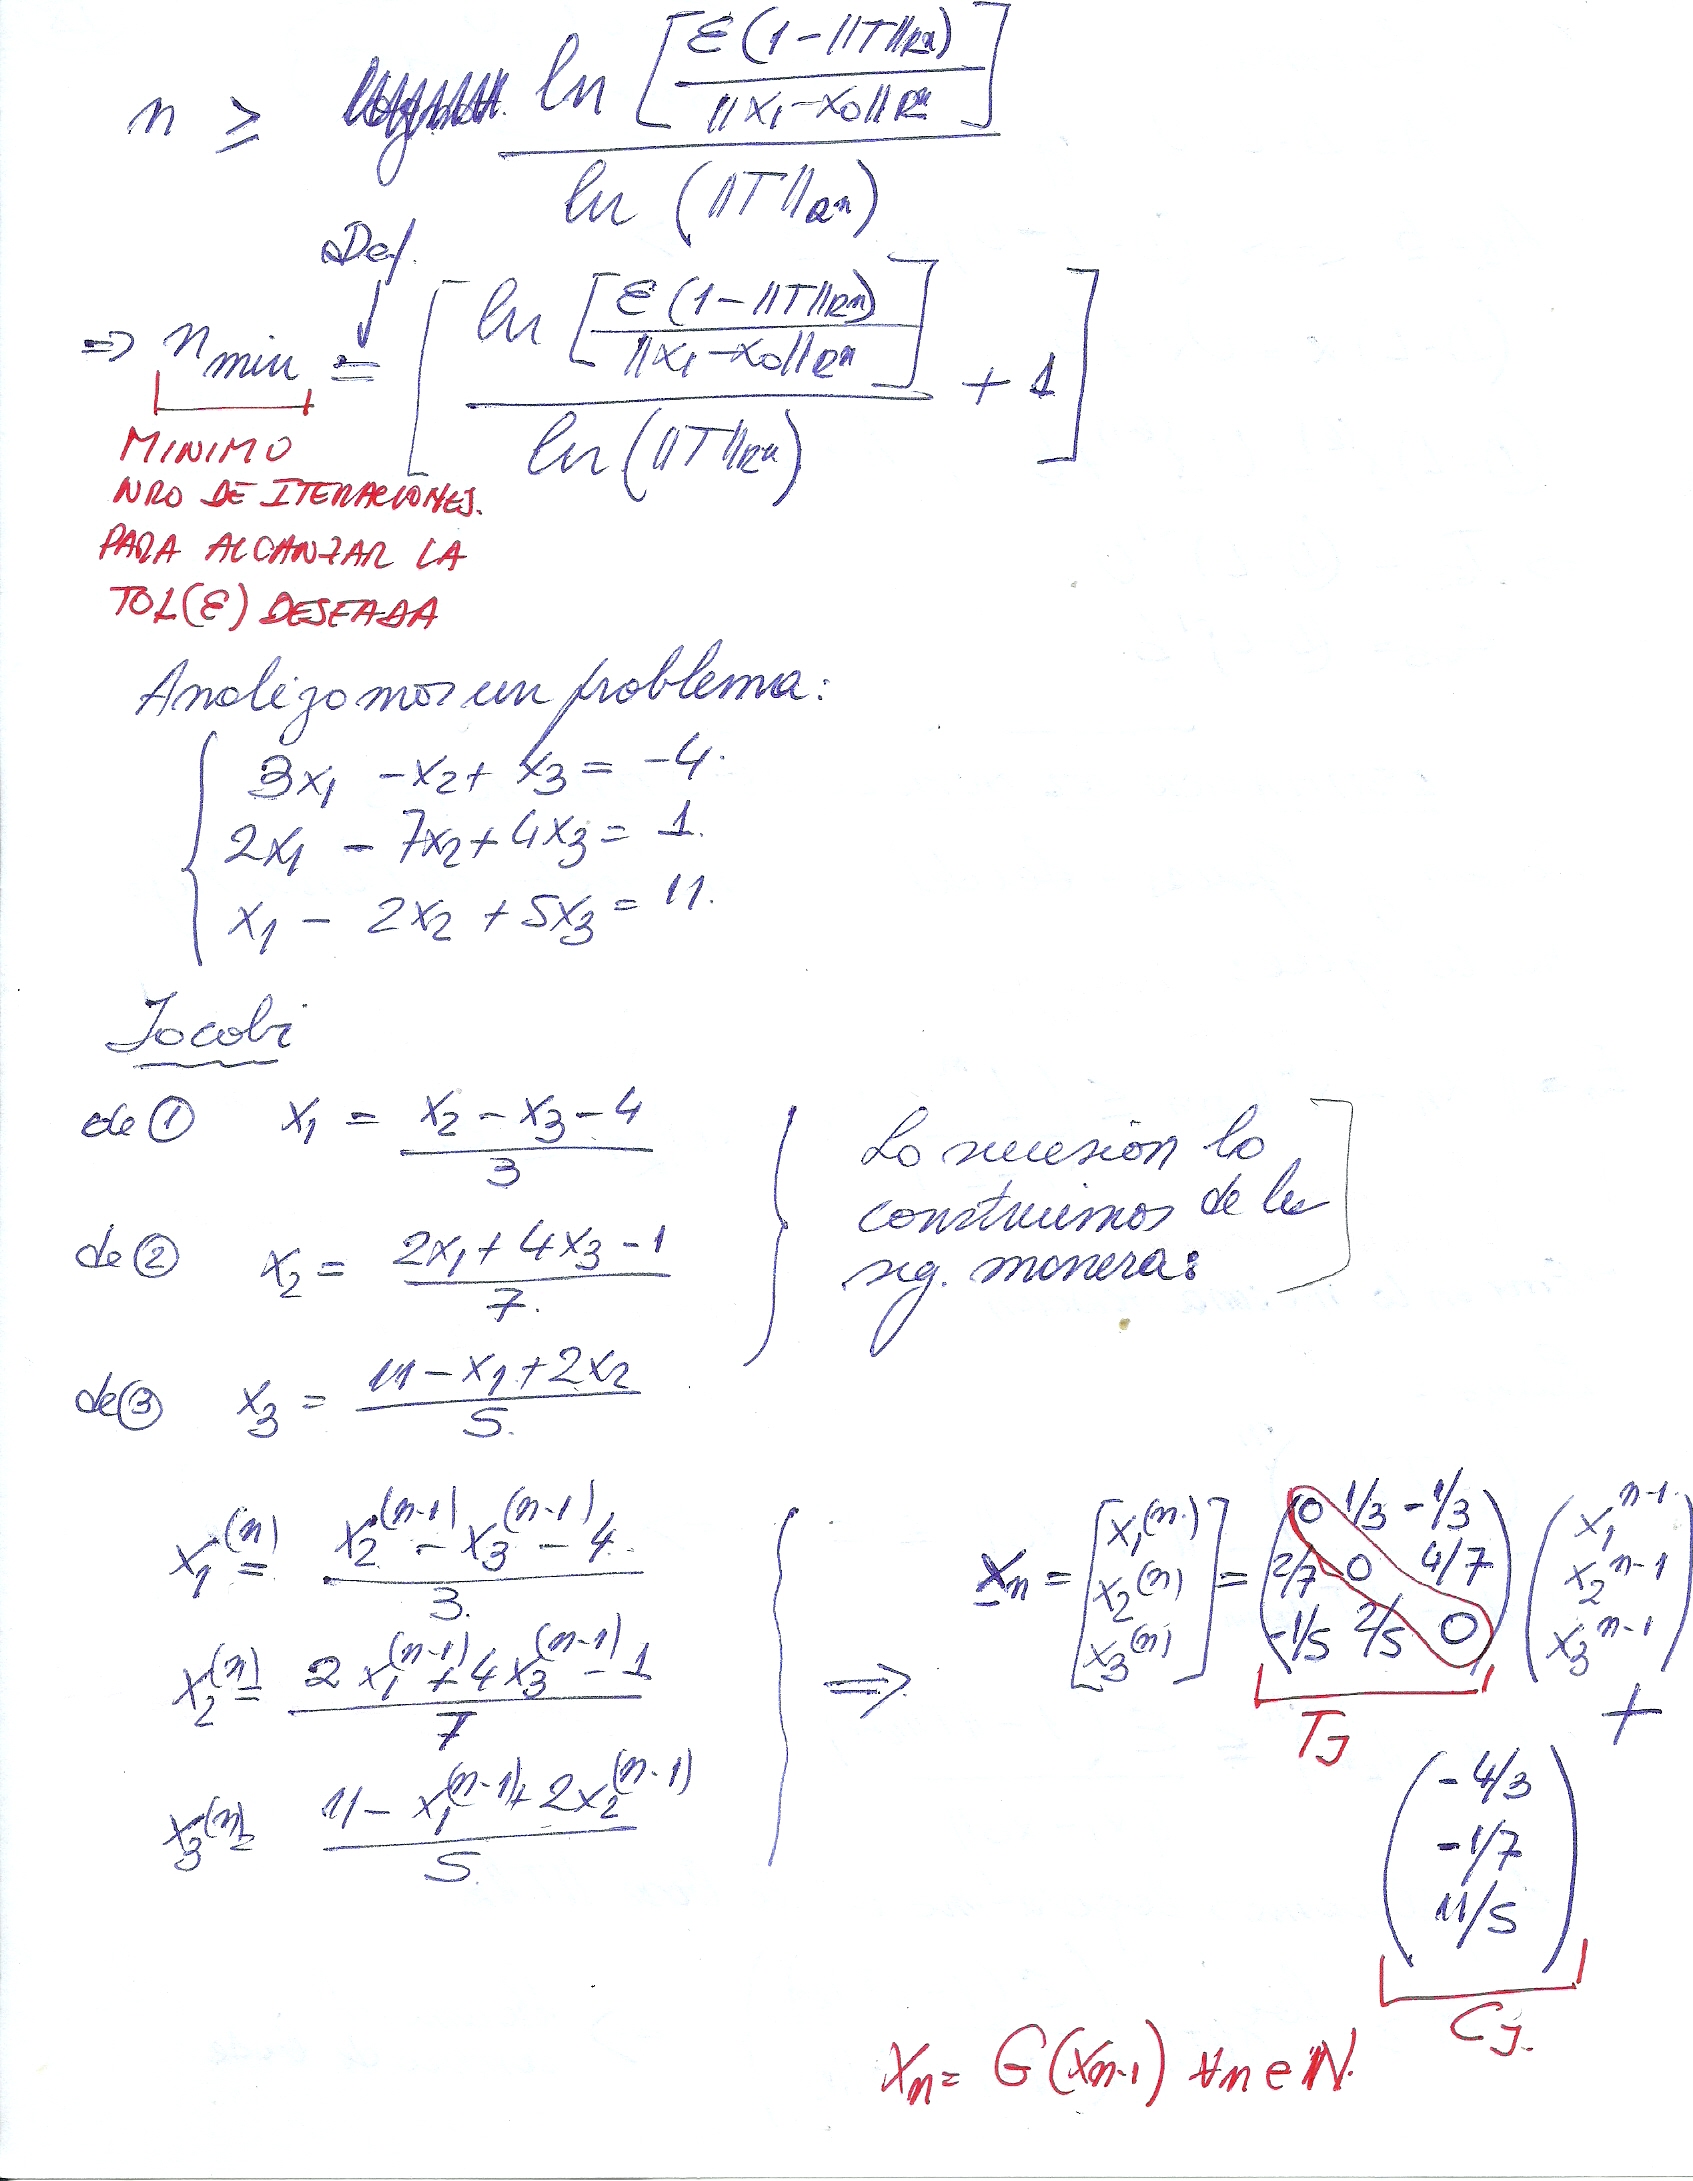 n ≥ ln [ε(1-||T||Rn) / ||x1-x0||Rn] / ln (||T||Rn)
Def.
⇒ nmin = [ ln [ε(1-||T||Rn) / ||x1-x0||Rn] / ln(||T||Rn) + 1 ]
MINIMO
NRO DE ITERACIONES.
PARA ALCANZAR LA
TOL(ε) DESEADA
Analizamos un problema:
3x1 - x2 + x3 = -4.
2x1 - 7x2 + 4x3 = 1.
x1 - 2x2 + 5x3 = 11.
Jacobi
de ① x1 = (x2 - x3 - 4) / 3
de ② x2 = (2x1 + 4x3 - 1) / 7.
de ③ x3 = (11 - x1 + 2x2) / 5.
La sucesión la
construimos de la
sig. manera:
x1^(n) = (x2^(n-1) - x3^(n-1) - 4) / 3.
x2^(n) = (2x1^(n-1) + 4x3^(n-1) - 1) / 7
x3^(n) = (11 - x1^(n-1) + 2x2^(n-1)) / 5.
⇒ xn = [x1^(n) x2^(n) x3^(n)] = (0 1/3 -1/3
2/7 0 4/7
-1/5 2/5 0) (x1^n-1 x2^n-1 x3^n-1)
TJ
+
(-4/3
-1/7
11/5)
CJ.
xn = G(xn-1) ∀n∈N.